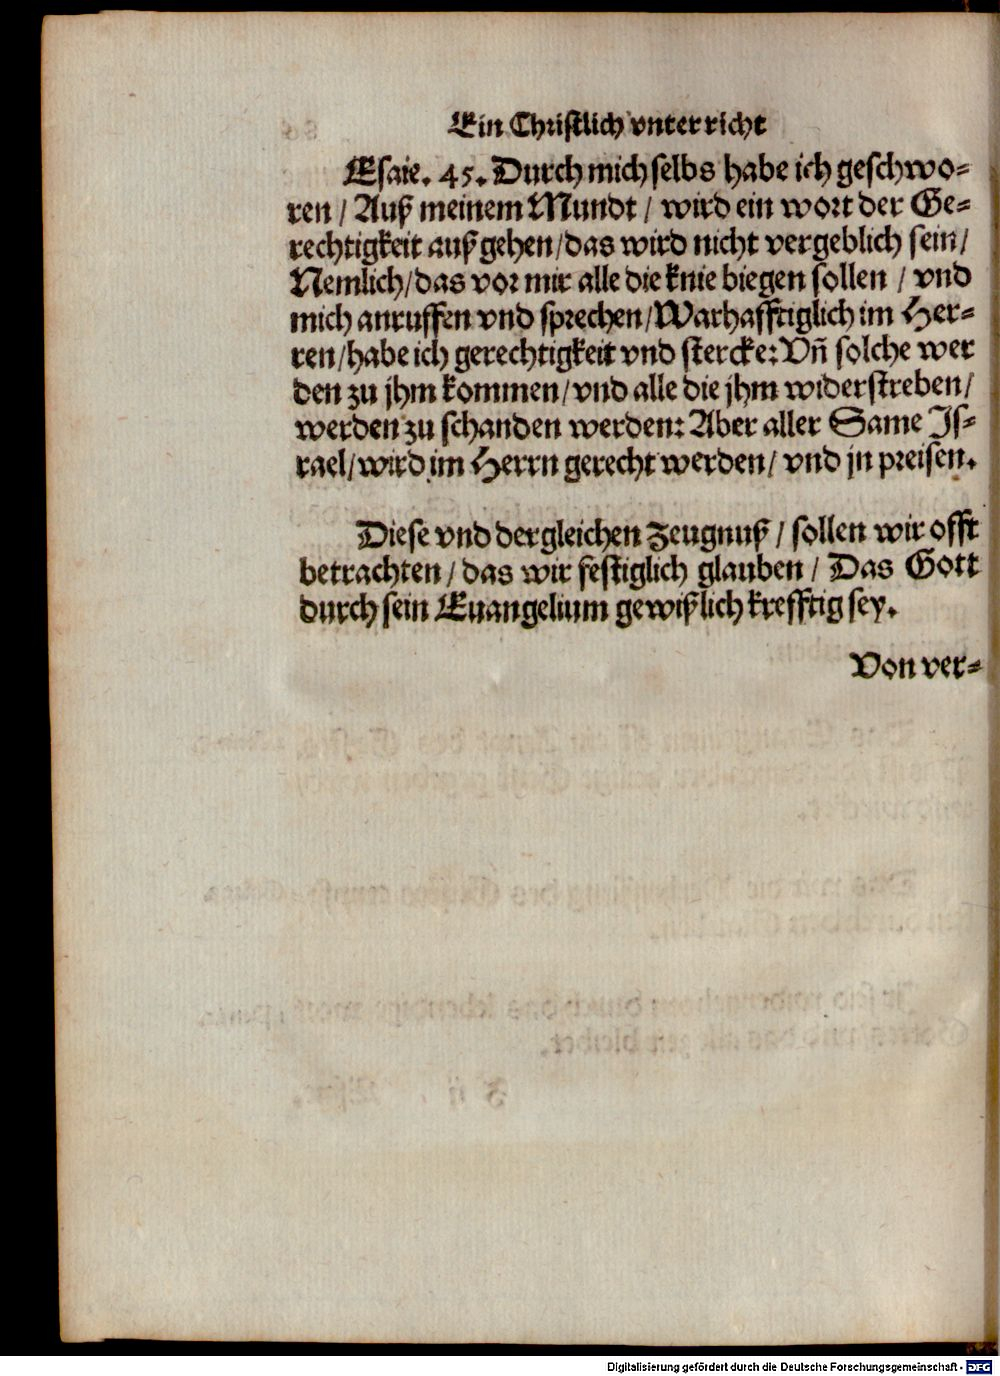 Ein Christlich vnterricht
Esaie. 45. Durch mich selbs habe ich geschwo-
ren / Auß meinem Mundt / wird ein wort der Ge-
rechtigkeit auß gehen / das wird nicht vergeblich sein /
Nemlich / das vor mir alle die knie biegen sollen / vnd
mich anruffen vnd sprechen / Warhafftiglich im Her-
ren / habe ich gerechtigkeit vnd stercke: Vñ solche wer
den zu jhm kommen / vnd alle die jhm widerstreben /
werden zu schanden werden: Aber aller Same Js-
rael / wird im Herrn gerecht werden / vnd jn preisen.
Diese vnd dergleichen Zeugnuß / sollen wir offt
betrachten / das wir festiglich glauben / Das Gott
durch sein Euangelium gewißlich krefftig sey.
Von ver-
Digitalisierung gefördert durch die Deutsche Forschungsgemeinschaft - DFG